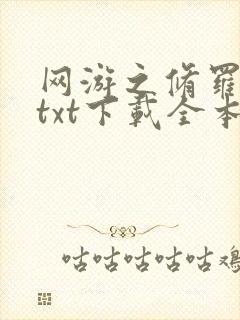 网游之脩羅
txt下載全本
咕咕咕咕咕鸡